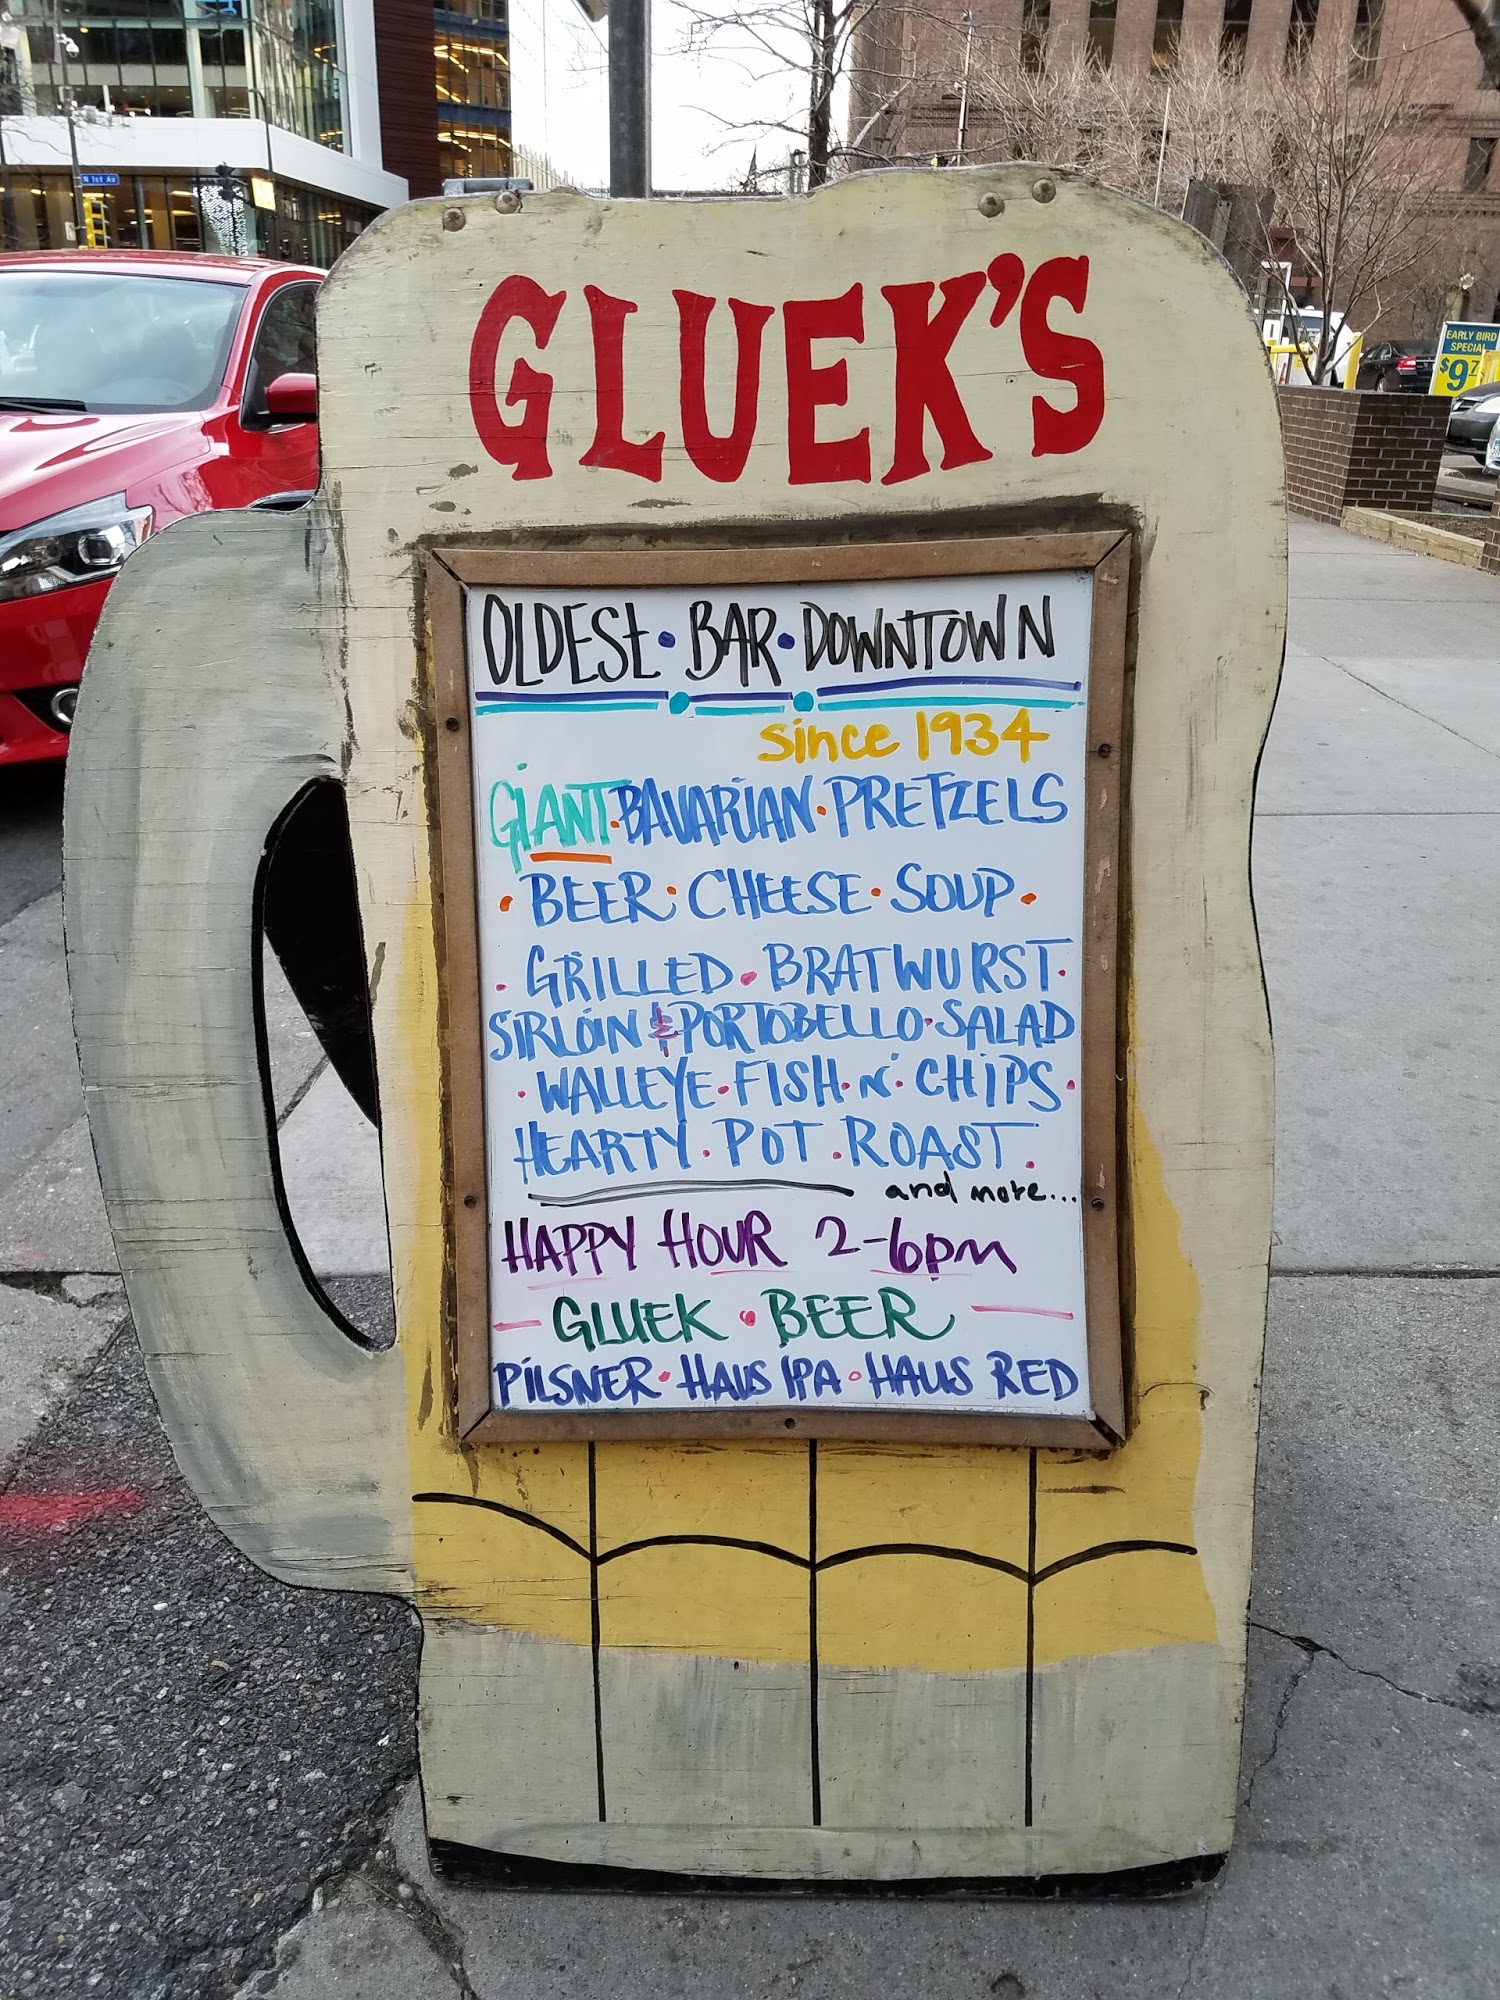 N 1st Av
EARLY BIRD
SPECIAL
$9
GLUEK'S
OLDEST·BAR·DOWNTOWN
since 1934
GIANT·BAVARIAN·PRETZELS
·BEER·CHEESE·SOUP·
·GRILLED·BRATWURST·
SIRLOIN & PORTOBELLO·SALAD
·WALLEYE·FISH·N'·CHIPS·
HEARTY·POT·ROAST·
and more...
HAPPY HOUR 2-6pm
GLUEK·BEER
PILSNER·HAUS IPA·HAUS RED